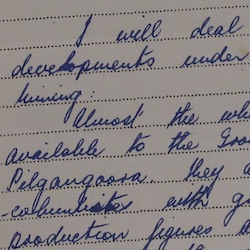 I will deal
developments under
mining:
Almost the wh
available to the Gro
Pilgangoora. they a
with g
production figures